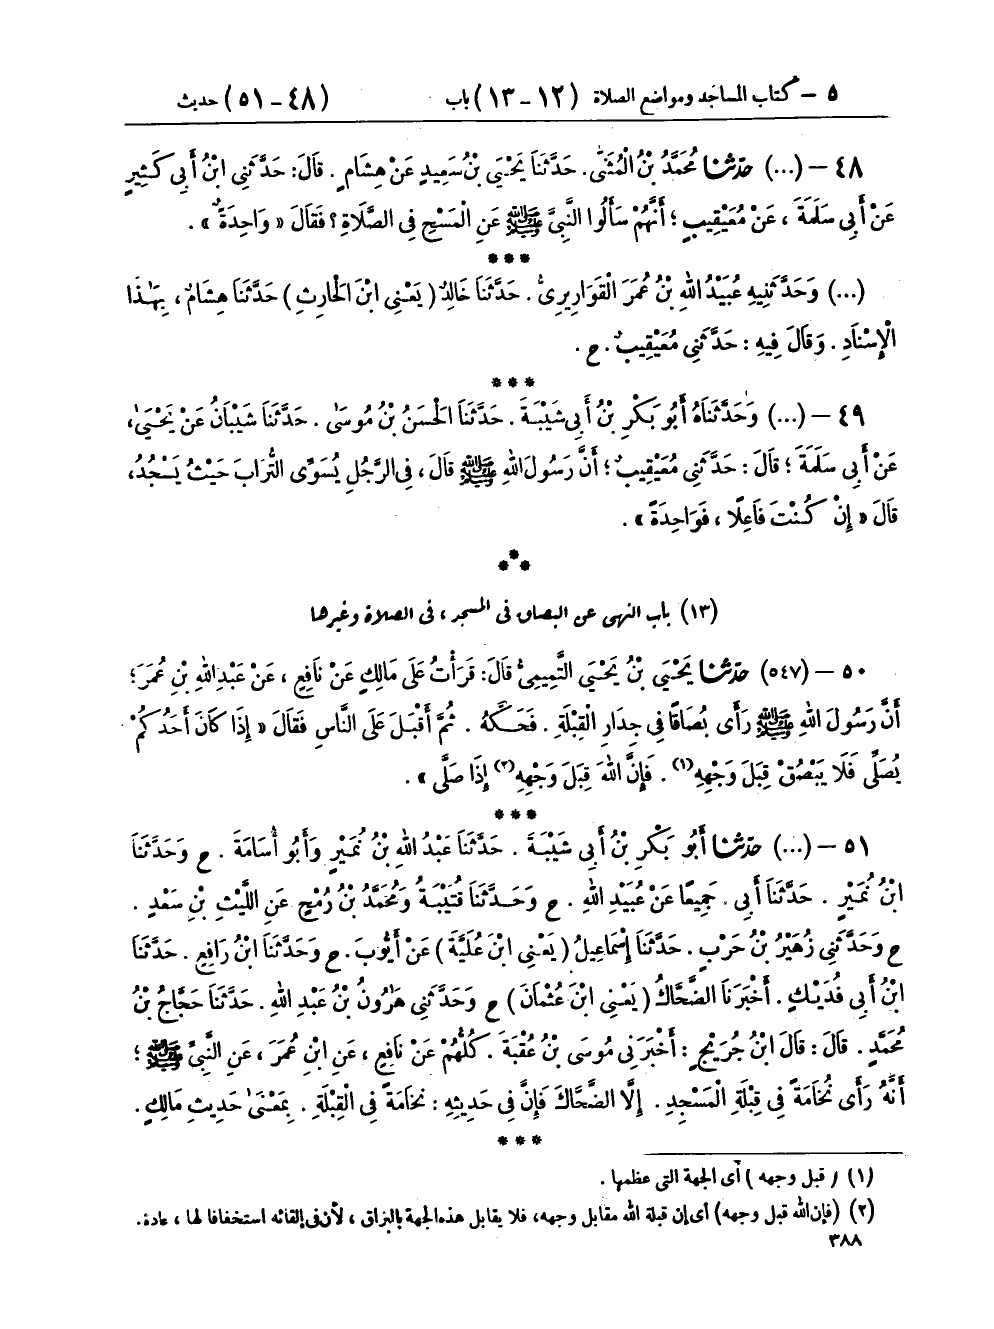 ٥ – كتاب المساجد ومواضع الصلاة (١٢-١٣) باب (٤٨-٥١) حديث
٤٨ – (...) حدّثنا مُحَمَّدُ بْنُ الْمُثَنَّى. حَدَّثَنَا يَحْيَىٰ بْنُ سَعِيدٍ عَنْ هِشَامٍ. قَالَ: حَدَّثَنِي ابْنُ أَبِي كَثِيرٍ
عَنْ أَبِي سَلَمَةَ، عَنْ مُعَيْقِيبٍ؛ أَنَّهُمْ سَأَلُوا النَّبِيَّ ﷺ عَنِ الْمَسْحِ فِي الصَّلَاةِ؟ فَقَالَ « وَاحِدَةٌ » .
***
(...) وَحَدَّثَنِيهِ عُبَيْدُ اللهِ بْنُ عُمَرَ الْقَوَارِيرِيُّ. حَدَّثَنَا خَالِدٌ ( يَعْنِي ابْنَ الْحَارِثِ ) حَدَّثَنَا هِشَامٌ، بِهَٰذَا
الْإِسْنَادِ. وَقَالَ فِيهِ : حَدَّثَنِي مُعَيْقِيبٌ. ح .
***
٤٩ – (...) وَحَدَّثَنَاهُ أَبُو بَكْرِ بْنُ أَبِي شَيْبَةَ. حَدَّثَنَا الْحَسَنُ بْنُ مُوسَىٰ. حَدَّثَنَا شَيْبَانُ عَنْ يَحْيَىٰ،
عَنْ أَبِي سَلَمَةَ؛ قَالَ: حَدَّثَنِي مُعَيْقِيبٌ؛ أَنَّ رَسُولَ اللهِ ﷺ قَالَ، فِي الرَّجُلِ يُسَوِّي التُّرَابَ حَيْثُ يَسْجُدُ،
قَالَ « إِنْ كُنْتَ فَاعِلًا، فَوَاحِدَةً » .
***
(١٣) باب النهى عن البصاق فى المسجد، فى الصلاة وغيرها
٥٠ – (٥٤٧) حدّثنا يَحْيَىٰ بْنُ يَحْيَى التَّمِيمِيُّ قَالَ: قَرَأْتُ عَلَى مَالِكٍ عَنْ نَافِعٍ، عَنْ عَبْدِ اللهِ بْنِ عُمَرَ؛
أَنَّ رَسُولَ اللهِ ﷺ رَأَى بُصَاقًا فِي جِدَارِ الْقِبْلَةِ. فَحَكَّهُ. ثُمَّ أَقْبَلَ عَلَى النَّاسِ فَقَالَ « إِذَا كَانَ أَحَدُكُمْ
يُصَلِّي فَلَا يَبْصُقْ قِبَلَ وَجْهِهِ(١). فَإِنَّ اللهَ قِبَلَ وَجْهِهِ(٢) إِذَا صَلَّى » .
***
٥١ – (...) حدّثنا أَبُو بَكْرِ بْنُ أَبِي شَيْبَةَ. حَدَّثَنَا عَبْدُ اللهِ بْنُ نُمَيْرٍ وَأَبُو أُسَامَةَ. ح وَحَدَّثَنَا
ابْنُ نُمَيْرٍ. حَدَّثَنَا أَبِي. جَمِيعًا عَنْ عُبَيْدِ اللهِ. ح وَحَدَّثَنَا قُتَيْبَةُ وَمُحَمَّدُ بْنُ رُمْحٍ عَنِ اللَّيْثِ بْنِ سَعْدٍ.
ح وَحَدَّثَنِي زُهَيْرُ بْنُ حَرْبٍ. حَدَّثَنَا إِسْمَاعِيلُ ( يَعْنِي ابْنَ عُلَيَّةَ ) عَنْ أَيُّوبَ. ح وَحَدَّثَنَا ابْنُ رَافِعٍ. حَدَّثَنَا
ابْنُ أَبِي فُدَيْكٍ. أَخْبَرَنَا الضَّحَّاكُ ( يَعْنِي ابْنَ عُثْمَانَ ) ح وَحَدَّثَنِي هَٰرُونُ بْنُ عَبْدِ اللهِ. حَدَّثَنَا حَجَّاجُ بْنُ
مُحَمَّدٍ. قَالَ: قَالَ ابْنُ جُرَيْجٍ: أَخْبَرَنِي مُوسَى بْنُ عُقْبَةَ. كُلُّهُمْ عَنْ نَافِعٍ، عَنِ ابْنِ عُمَرَ، عَنِ النَّبِيِّ ﷺ؛
أَنَّهُ رَأَى نُخَامَةً فِي قِبْلَةِ الْمَسْجِدِ. إِلَّا الضَّحَّاكَ فَإِنَّ فِي حَدِيثِهِ: نُخَامَةً فِي الْقِبْلَةِ. بِمَعْنَىٰ حَدِيثِ مَالِكٍ.
***
(١) ( قبل وجهه ) أى الجهة التى عظمها .
(٢) (فإن الله قبل وجهه) أى إن قبلة الله مقابل وجهه، فلا يقابل هذه الجهة بالبزاق، لأن فى إلقائه استخفافا لها، عادة.
٣٨٨